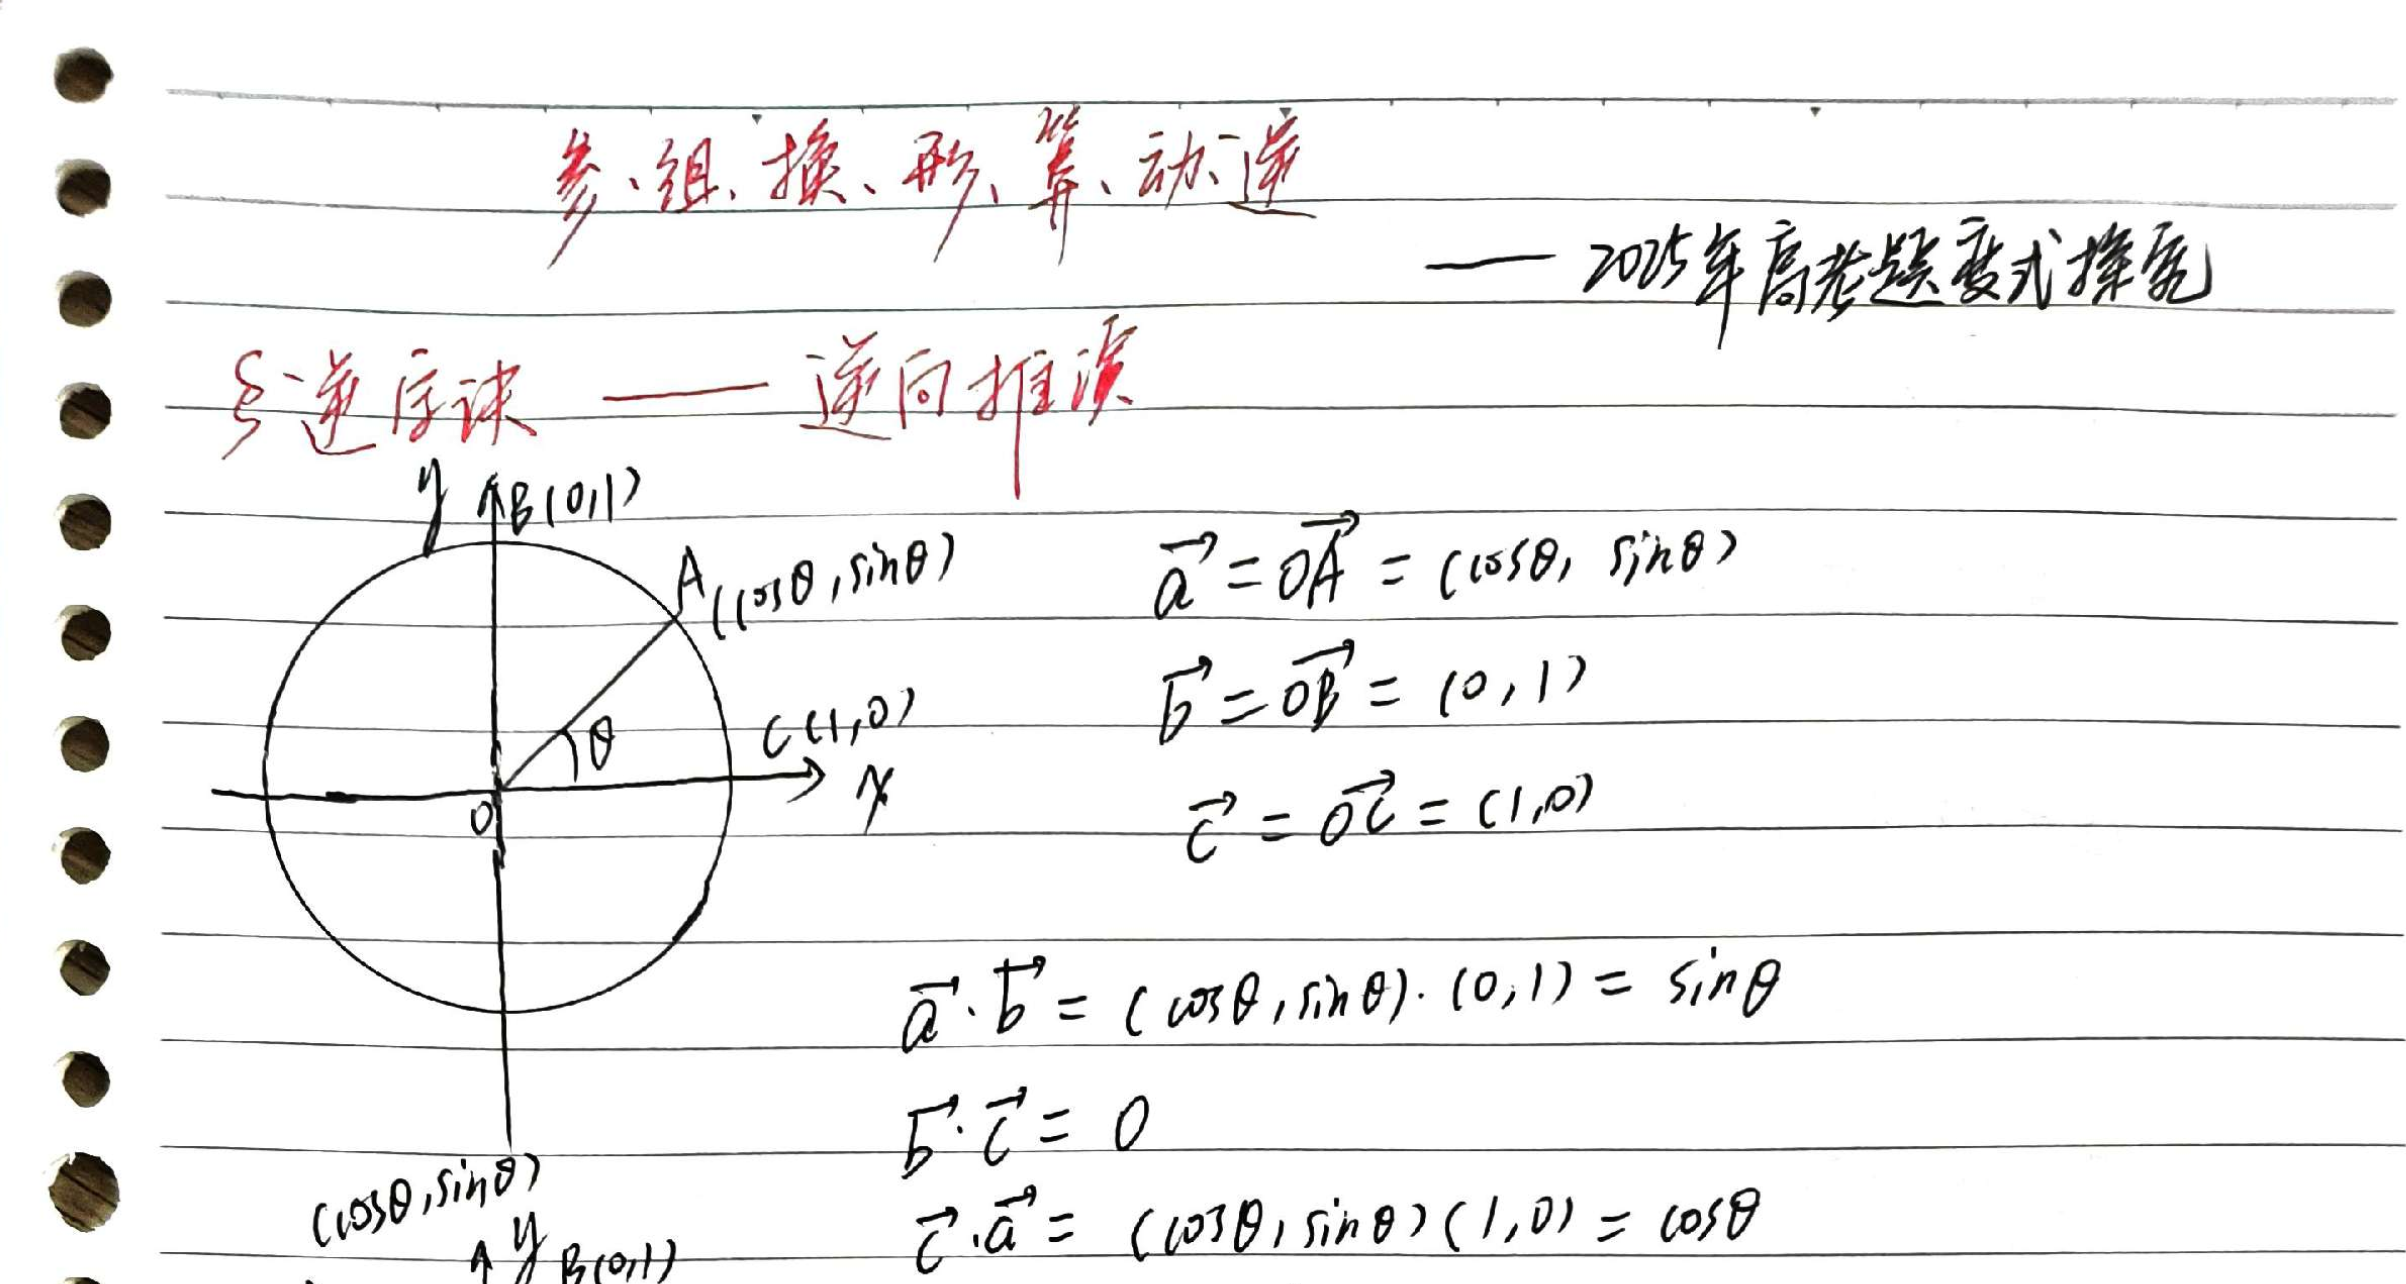 参、组、换、形、算、动、逆
—— 2025年高考题变式探究
§逆字诀 —— 逆向推演
y B(0,1)
A(cosθ,sinθ)
C(1,0)
θ
x
O
a⃗ = OA⃗ = (cosθ, sinθ)
b⃗ = OB⃗ = (0,1)
c⃗ = OC⃗ = (1,0)
a⃗·b⃗ = (cosθ,sinθ)·(0,1) = sinθ
b⃗·c⃗ = 0
c⃗·a⃗ = (cosθ,sinθ)(1,0) = cosθ
(cosθ,sinθ)
y B(0,1)